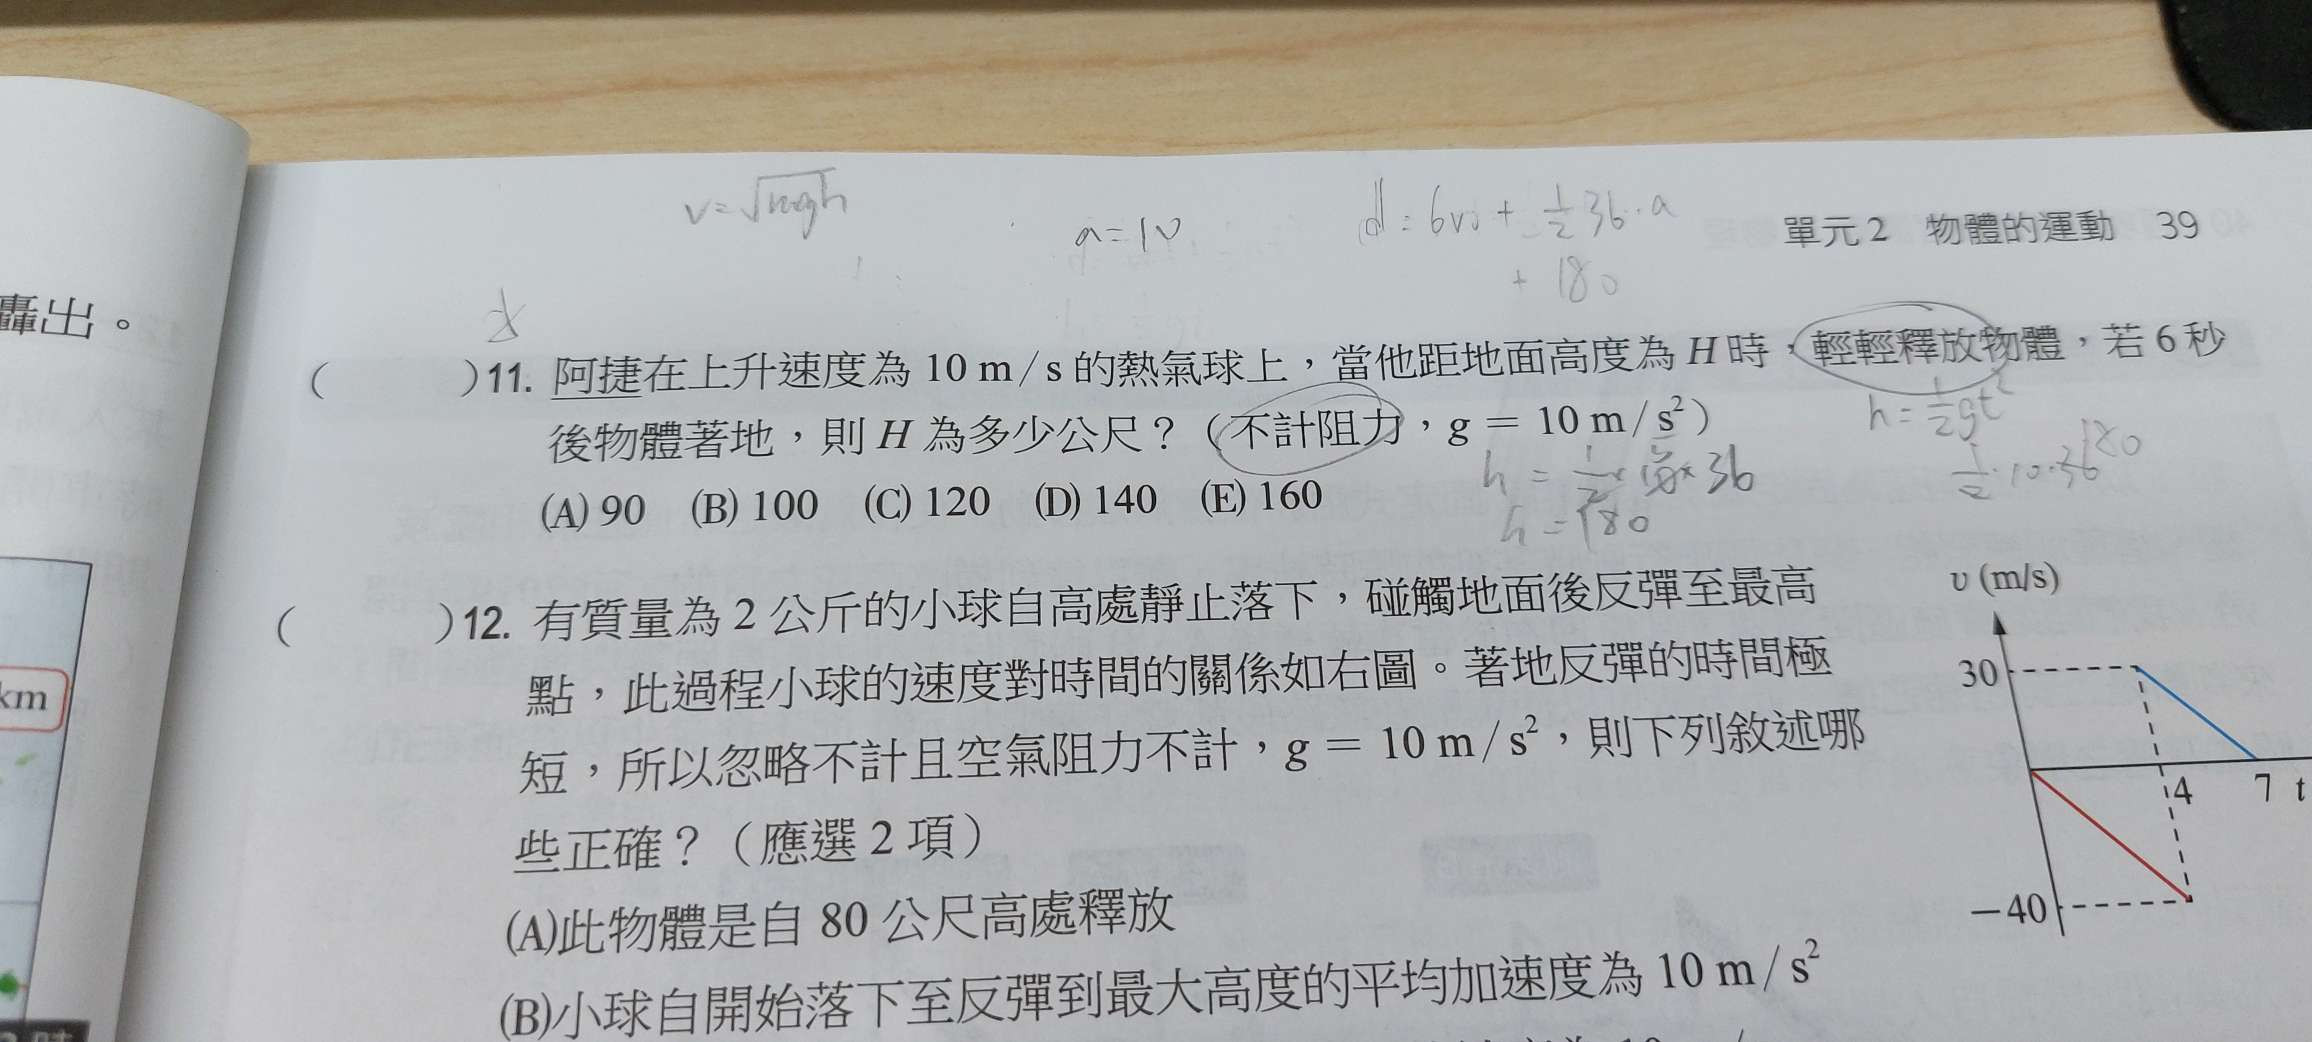 v=√2gh
a=10
d=6v0+1/2 36·a
+180
單元2 物體的運動 39
轟出。
( )11. 阿捷在上升速度為 10 m/s 的熱氣球上，當他距地面高度為 H 時，輕輕釋放物體，若 6 秒
後物體著地，則 H 為多少公尺？（不計阻力，g = 10 m/s²）
(A) 90 (B) 100 (C) 120 (D) 140 (E) 160
h=1/2gt²
1/2·10·36 180
h=1/2×10×36
h=180
( )12. 有質量為 2 公斤的小球自高處靜止落下，碰觸地面後反彈至最高
點，此過程小球的速度對時間的關係如右圖。著地反彈的時間極
短，所以忽略不計且空氣阻力不計，g = 10 m/s²，則下列敘述哪
些正確？（應選 2 項）
(A)此物體是自 80 公尺高處釋放
(B)小球自開始落下至反彈到最大高度的平均加速度為 10 m/s²
υ (m/s)
30
4 7 t
−40
km